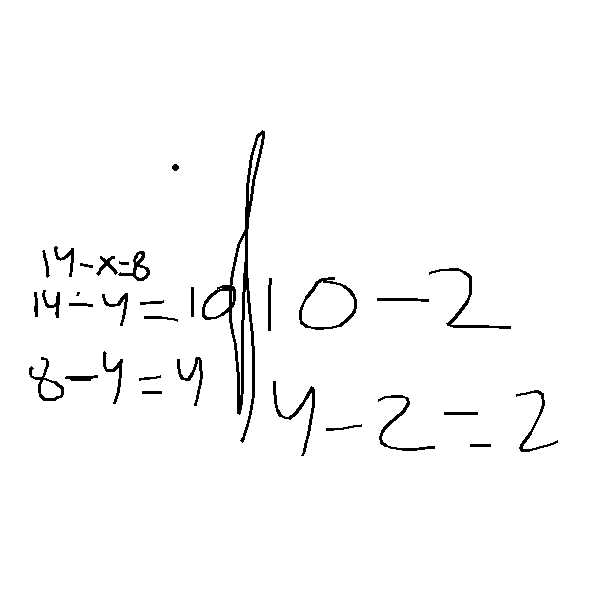 14-x=8
14-4=10
8-4=4
10-2
4-2=2